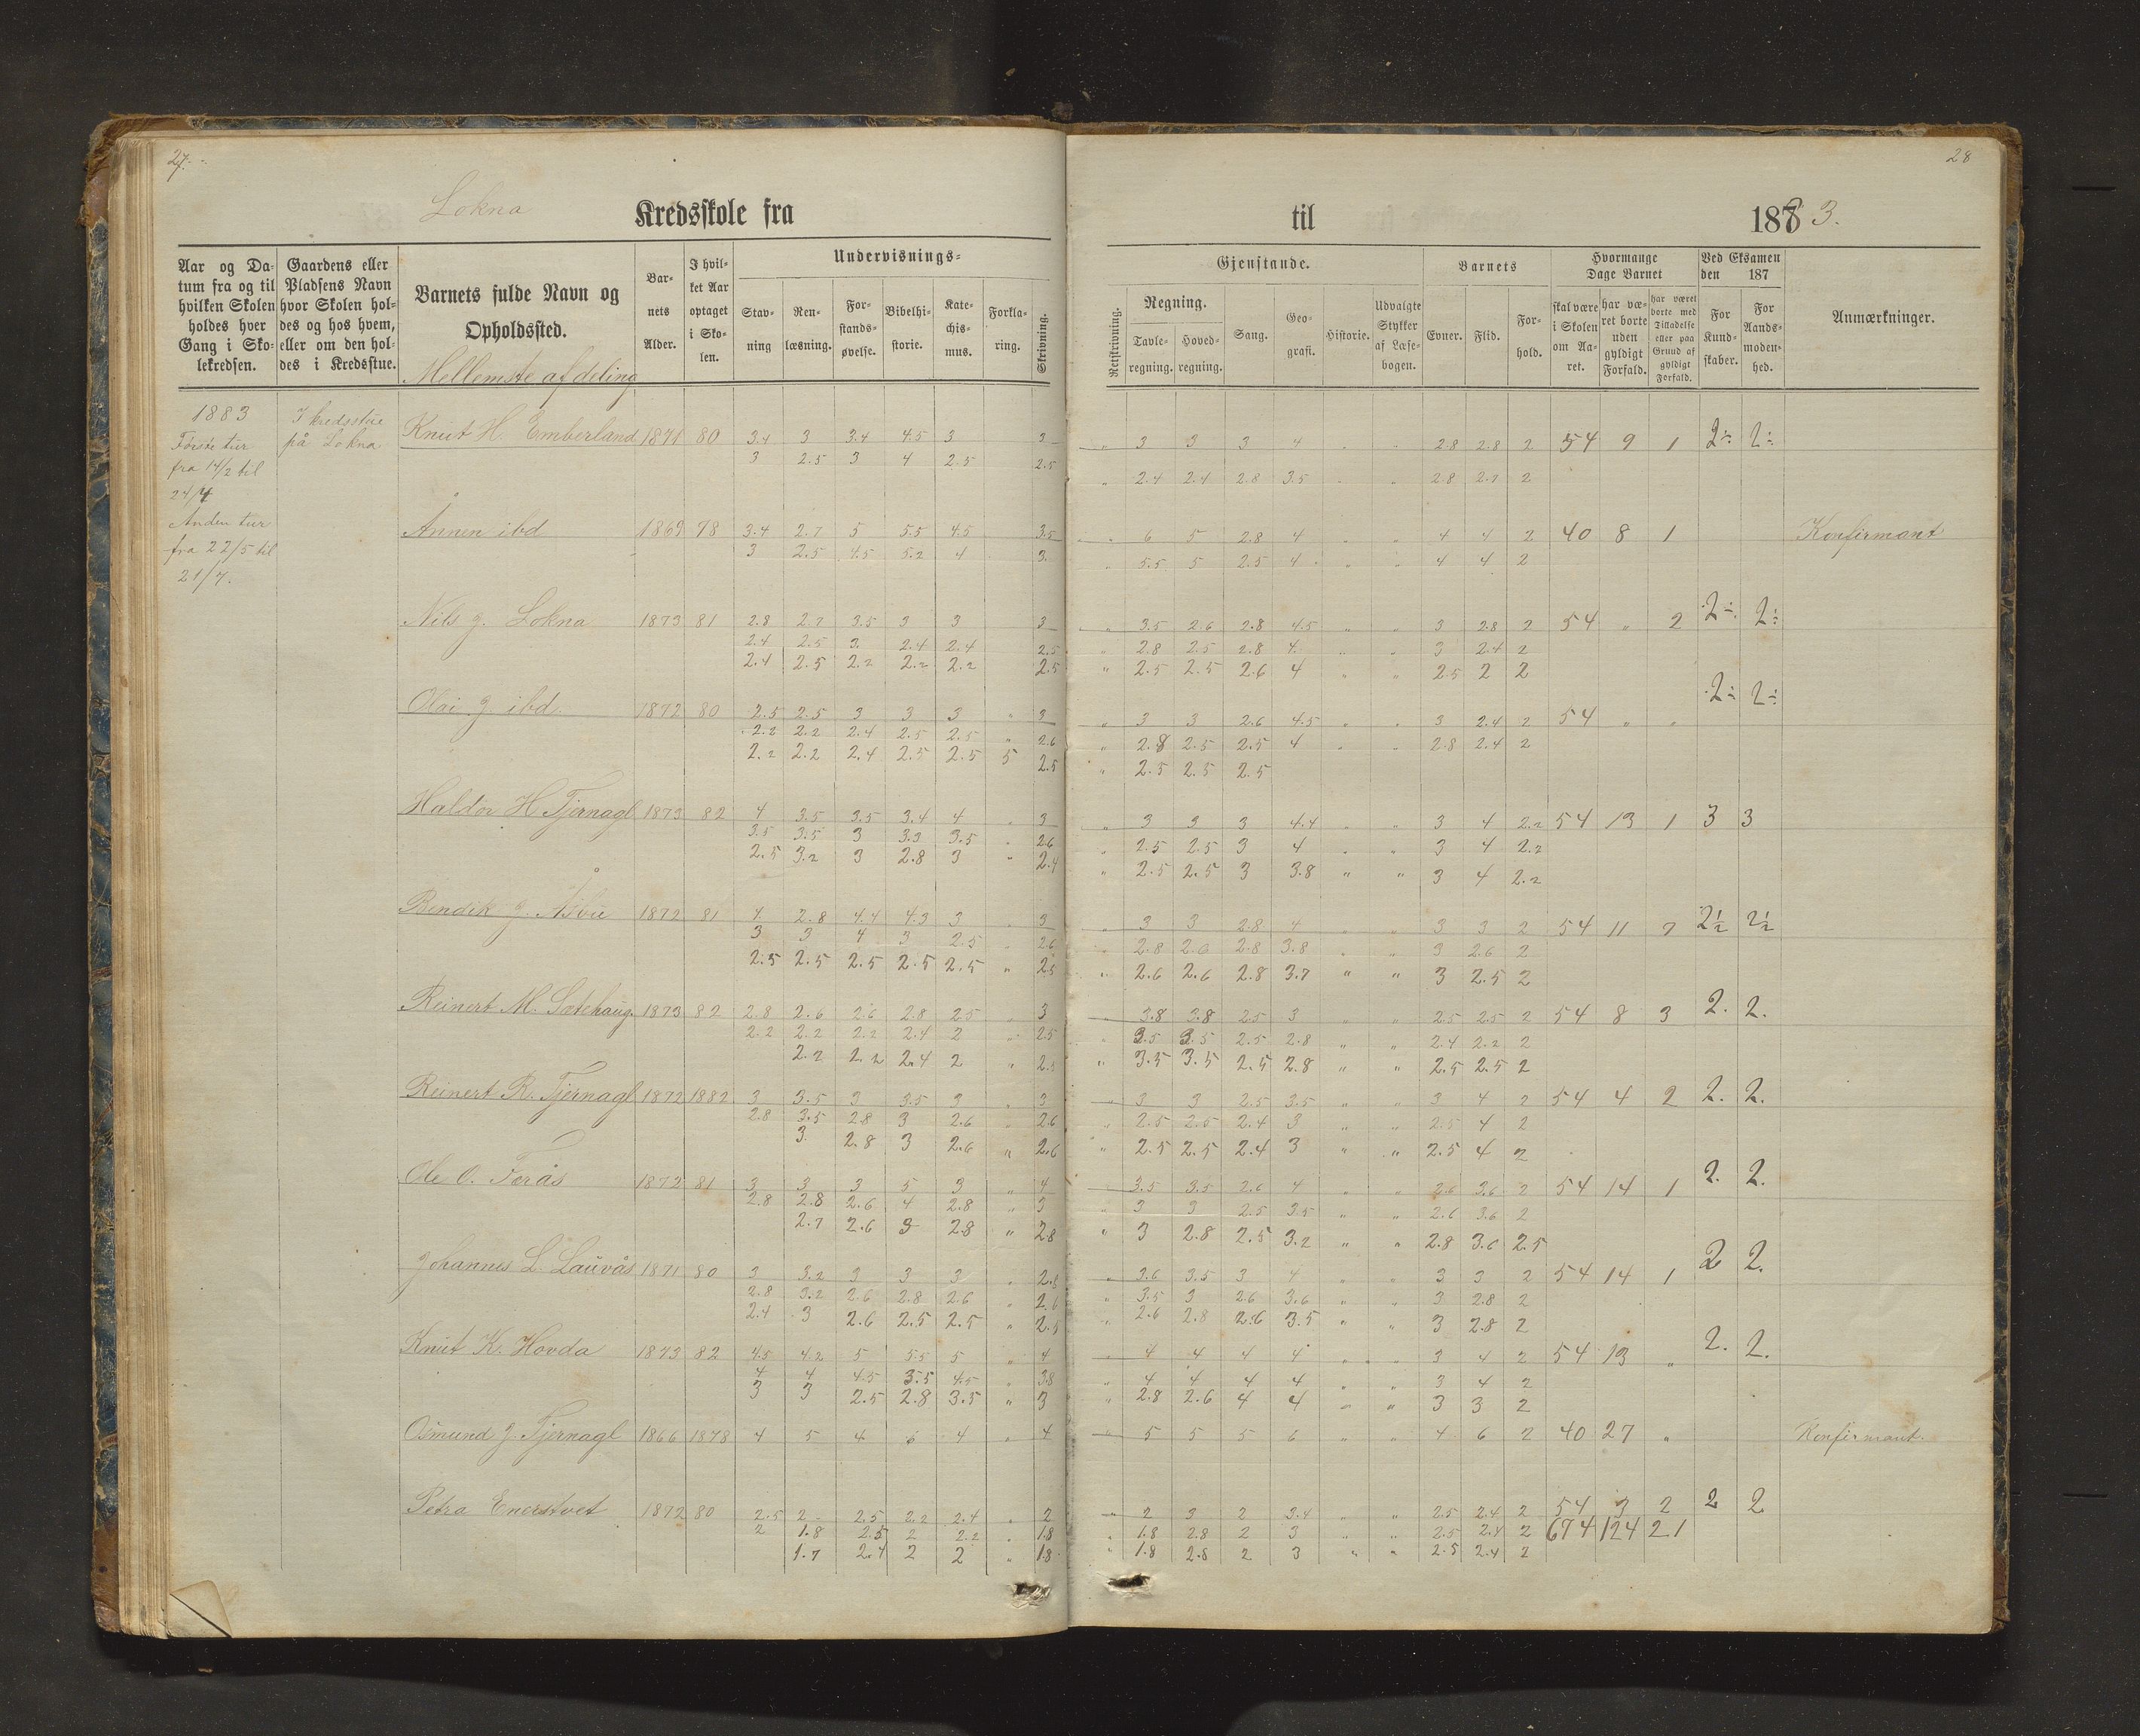 27.
Lokna Kredsskole fra
Aar og Da-
tum fra og til
hvilken Skolen
holdes hver
Gang i Sko-
lekredsen.
Gaardens eller
Pladsens Navn
hvor Skolen hol-
des og hos hvem,
eller om den hol-
des i Kredsstue.
Barnets fulde Navn og
Opholdssted.
Mellemste afdeling
Bar-
nets
Alder.
I hvil-
ket Aar
optaget
i Sko-
len.
Undervisnings-
Stav-
ning
Ren-
læsning.
For-
stands-
øvelse.
Bibelhi-
storie.
Kate-
chis-
mus.
Forkla-
ring.
Skrivning.
1883
Første tur
fra 14/2 til
24/4
Anden tur
fra 22/5 til
21/7.
I kredsstue
på Lokna
Knut H. Emberland 1871 80 3.4 3 3.4 4.5 3 3
3 2.5 3 4 2.5 2.5
Annen ibd 1869 78 3.4 2.7 5 5.5 4.5 3.5
3 2.5 4.5 5.2 4 3.
Nils J. Lokna 1873 81 2.8 2.7 3.5 3 3 3
2.4 2.5 3. 2.4 2.4 2.5
2.4 2.5 2.2 2.2 2.2 2.5
Olai J. ibd. 1872 80 2.5 2.5 3 3 3 " 3
2.2 2.2 2.4 2.5 2.5 " 2.6
2.2 2.2 2.4 2.5 2.5 5 2.5
Haldor H Tjernagl 1873 82 4 3.5 3.5 3.4 4 " 3
3.5 3.5 3 3.3 3.5 " 2.6
2.5 3.2 3 2.8 3 " 2.4
Bendik J. Åsbu 1872 81 4. 2.8 4.4 4.3 3 " 3
3 3 4 3 2.5 " 2.6
2.5 2.5 2.5 2.5 2.5 " 2.5
Reinert M. Sætehaug. 1873 82 2.8 2.6 2.6 2.8 2.5 " 3
2.2 2.2 2.2 2.4 2 " 2.5
2.2 2.2 2.4 2 " 2.5
Reinert R. Tjernagl 1872 1882 3 3.5 3 3.5 3 " 3
2.8 3.5 2.8 3 2.6 " 2.6
3 2.8 3 2.6 " 2.6
Ole O. Forås 1872 81 3 3 3 5 3 " 4
2.8 2.8 2.6 4 2.8 " 3
2.7 2.6 3 2.8 " 2.8
Johannes L. Lauvås 1871 80 3 3.2 3 3 3 " 2.8
2.8 3.2 2.6 2.8 2.6 " 2.6
2.4 3 2.6 2.5 2.5 " 2.5
Knut K. Hovda 1873 82 4.5 4.2 5 5.5 5 " 4
4 4 4.5 3.5 4.5 " 3.8
3 3 2.5 2.8 3.5 " 3
Osmund J. Tjernagl 1866 1878 4 5 4 6 4 " 4
Petra Enerstvet 1872 80 2.5 2 2.5 2.2 2.4 " 2
2 1.8 2.5 2 2.2 " 1.8
1.7 2.4 2 2 " 1.8
28
til 1883.
Gjenstande.
Retskrivning.
Regning.
Tavle-
regning.
Hoved-
regning.
Sang.
Geo-
grafi.
Historie.
Udvalgte
Stykker
af Læse-
bogen.
Barnets
Evner.
Flid.
For-
hold.
Hvormange
Dage Barnet
skal være
i Skolen
om Aa-
ret.
har væ-
ret borte
uden
gyldigt
Forfald.
har været
borte med
Tilladelse
eller paa
Grund af
gyldigt
Forfald.
Ved Eksamen
den 187
For
Kund-
skaber.
For
Aands-
moden-
hed.
Anmærkninger.
" 3 3 3 4 " " 2.8 2.8 2 54 9 1 2÷ 2÷
" 2.4 2.4 2.8 3.5 " " 2.8 2.7 2
" 6 5 2.8 4 " " 4 4 2 40 8 1 Konfirmant
" 5.5 5 2.5 4 " " 4 4 2
" 3.5 2.6 2.8 4.5 " " 3 2.8 2 54 " 2 2÷ 2÷
" 2.8 2.5 2.8 4. " " 3 2.4 2
" 2.5 2.5 2.6 4 " " 2.5 2 2
" 3 3 2.6 4.5 " " 3 2.4 2 54 " " 2÷ 2÷
" 2.8 2.5 2.5 4 " " 2.8 2.4 2
" 2.5 2.5 2.5
" 3 3 3 4.4 " " 3 4 2.2 54 13 1 3 3
" 2.5 2.5 3 4 " " 3 4 2.2
" 2.5 2.5 3 3.8 " " 3 4 2.2
" 3 3 2.8 4 " " 3 3 2 54 11 7 2½ 2½
" 2.8 2.6 2.8 3.8 " " 3 2.6 2
" 2.6 2.6 2.8 3.7 " " 3 2.5 2
" 3.8 3.8 2.5 3 " " 2.5 2.5 2 54 8 3 2. 2.
" 3.5 3.5 2.5 2.8 " " 2.4 2.2 2
" 3.5 3.5 2.5 2.8 " " 2.5 2.5 2
" 3 3 2.5 3.5 " " 3 4 2 54 4 2 2. 2.
" 2.5 2.5 2.4 3 " " 2.5 4 2
" 2.5 2.5 2.4 3 " " 2.5 4 2
" 3.5 3.5 2.6 4 " " 2.6 3.6 2 54 14 1 2. 2.
" 3 3 2.5 3.5 " " 2.6 3.6 2
" 3 2.8 2.5 3.2 " " 2.8 3.6 2.5
" 3.6 3.5 3 4 " " 3 3 2 54 14 1 2 2.
" 3.5 3 2.6 3.6 " " 3 2.8 2
" 2.6 2.8 2.6 3.5 " " 3 2.8 2
" 4 4 4 4 " " 3 4 2 54 13 " 2. 2.
" 4 4 4 4 " " 3 4 2
" 2.8 2.6 4 4 " " 3 3 2
" 5 5 5 6 " " 4 6 2 40 27 " Konfirmant.
" 2 3 2 3.4 " " 2.5 2.4 2 54 3 2 2 2
" 1.8 2.8 2 3 " " 2.5 2.4 2 674 124 21
" 1.8 2.8 2 3 " " 2.5 2.4 2